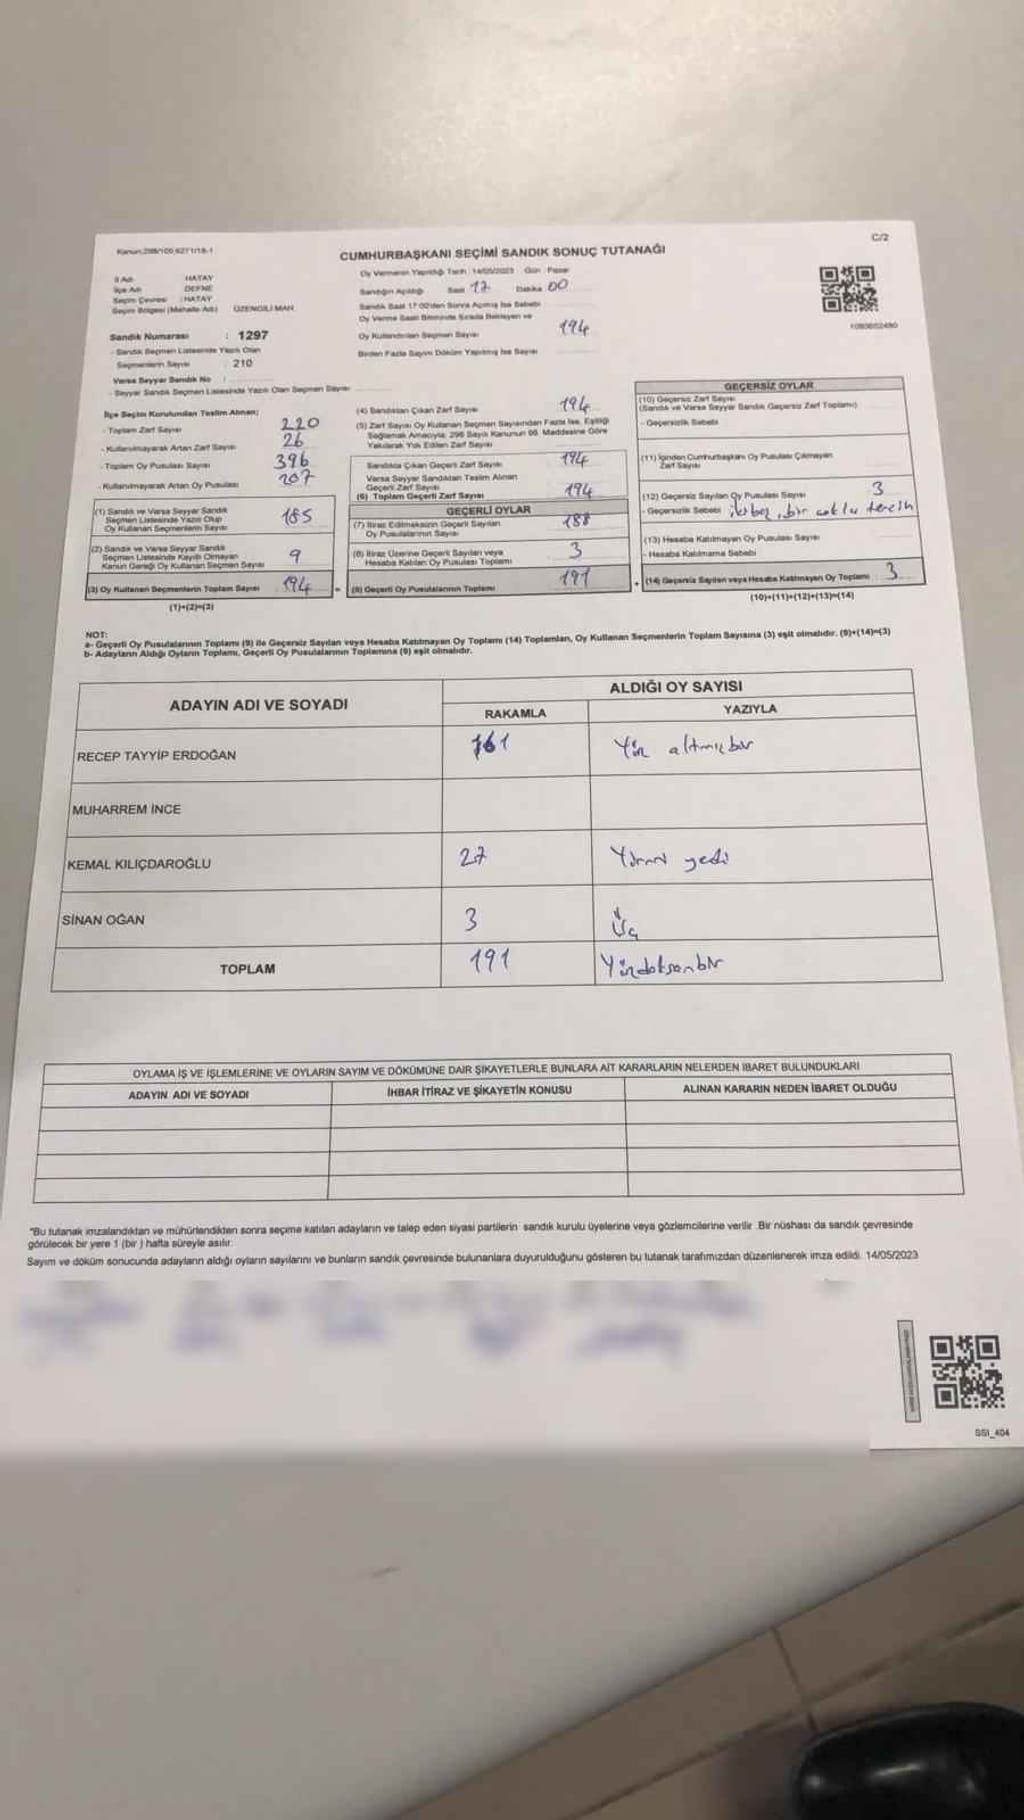 Kanun:298/100 6271/18-1
C/2
CUMHURBAŞKANI SEÇİMİ SANDIK SONUÇ TUTANAĞI
İl Adı : HATAY
İlçe Adı : DEFNE
Seçim Çevresi : HATAY
Seçim Bölgesi (Mahalle Adı) ÜZENGİLİ MAH
Sandık Numarası : 1297
- Sandık Seçmen Listesinde Yazılı Olan
Seçmenlerin Sayısı : 210
Varsa Seyyar Sandık No :
- Seyyar Sandık Seçmen Listesinde Yazılı Olan Seçmen Sayısı
Oy Vermenin Yapıldığı Tarih : 14/05/2023 Gün : Pazar
Sandığın Açıldığı Saat 17 Dakika 00
Sandık Saat 17:00'den Sonra Açılmış İse Sebebi
Oy Verme Saati Bitiminde Sırada Bekleyen ve
Oy Kullandırılan Seçmen Sayısı 194
Birden Fazla Sayım Döküm Yapılmış İse Sayısı
İlçe Seçim Kurulundan Teslim Alınan;
- Toplam Zarf Sayısı 220
- Kullanılmayarak Artan Zarf Sayısı 26
- Toplam Oy Pusulası Sayısı 396
- Kullanılmayarak Artan Oy Pusulası 207
(1) Sandık ve Varsa Seyyar Sandık
Seçmen Listesinde Yazılı Olup
Oy Kullanan Seçmenlerin Sayısı 185
(2) Sandık ve Varsa Seyyar Sandık
Seçmen Listesinde Kayıtlı Olmayan
Kanun Gereği Oy Kullanan Seçmen Sayısı 9
(3) Oy Kullanan Seçmenlerin Toplam Sayısı 194
(1)+(2)=(3)
(4) Sandıktan Çıkan Zarf Sayısı 194
(5) Zarf Sayısı Oy Kullanan Seçmen Sayısından Fazla İse, Eşitliği
Sağlamak Amacıyla; 298 Sayılı Kanunun 98. Maddesine Göre
Yakılarak Yok Edilen Zarf Sayısı
Sandıkta Çıkan Geçerli Zarf Sayısı 194
Varsa Seyyar Sandıktan Teslim Alınan
Geçerli Zarf Sayısı
(6) Toplam Geçerli Zarf Sayısı 194
GEÇERLİ OYLAR
(7) İtiraz Edilmeksizin Geçerli Sayılan
Oy Pusulalarının Sayısı 188
(8) İtiraz Üzerine Geçerli Sayılan veya
Hesaba Katılan Oy Pusulası Toplamı 3
= (9) Geçerli Oy Pusulalarının Toplamı 191
GEÇERSİZ OYLAR
(10) Geçersiz Zarf Sayısı
(Sandık ve Varsa Seyyar Sandık Geçersiz Zarf Toplamı)
- Geçersizlik Sebebi
(11) İçinden Cumhurbaşkanı Oy Pusulası Çıkmayan
Zarf Sayısı
(12) Geçersiz Sayılan Oy Pusulası Sayısı 3
- Geçersizlik Sebebi
(13) Hesaba Katılmayan Oy Pusulası Sayısı
- Hesaba Katılmama Sebebi
+ (14) Geçersiz Sayılan veya Hesaba Katılmayan Oy Toplamı 3
(10)+(11)+(12)+(13)=(14)
NOT:
a- Geçerli Oy Pusulalarının Toplamı (9) ile Geçersiz Sayılan veya Hesaba Katılmayan Oy Toplamı (14) Toplamları, Oy Kullanan Seçmenlerin Toplam Sayısına (3) eşit olmalıdır. (9)+(14)=(3)
b- Adayların Aldığı Oyların Toplamı, Geçerli Oy Pusulalarının Toplamına (9) eşit olmalıdır.
ADAYIN ADI VE SOYADI
ALDIĞI OY SAYISI
RAKAMLA YAZIYLA
RECEP TAYYİP ERDOĞAN 161 Yüz altmış bir
MUHARREM İNCE
KEMAL KILIÇDAROĞLU 27 Yirmi yedi
SİNAN OĞAN 3 Üç
TOPLAM 191 Yüzdoksanbir
OYLAMA İŞ VE İŞLEMLERİNE VE OYLARIN SAYIM VE DÖKÜMÜNE DAİR ŞİKAYETLERLE BUNLARA AİT KARARLARIN NELERDEN İBARET BULUNDUKLARI
ADAYIN ADI VE SOYADI İHBAR İTİRAZ VE ŞİKAYETİN KONUSU ALINAN KARARIN NEDEN İBARET OLDUĞU
"Bu tutanak imzalandıktan ve mühürlendikten sonra seçime katılan adayların ve talep eden siyasi partilerin sandık kurulu üyelerine veya gözlemcilerine verilir .Bir nüshası da sandık çevresinde
görülecek bir yere 1 (bir ) hafta süreyle asılır.
Sayım ve döküm sonucunda adayların aldığı oyların sayılarını ve bunların sandık çevresinde bulunanlara duyurulduğunu gösteren bu tutanak tarafımızdan düzenlenerek imza edildi. 14/05/2023
SSI_404